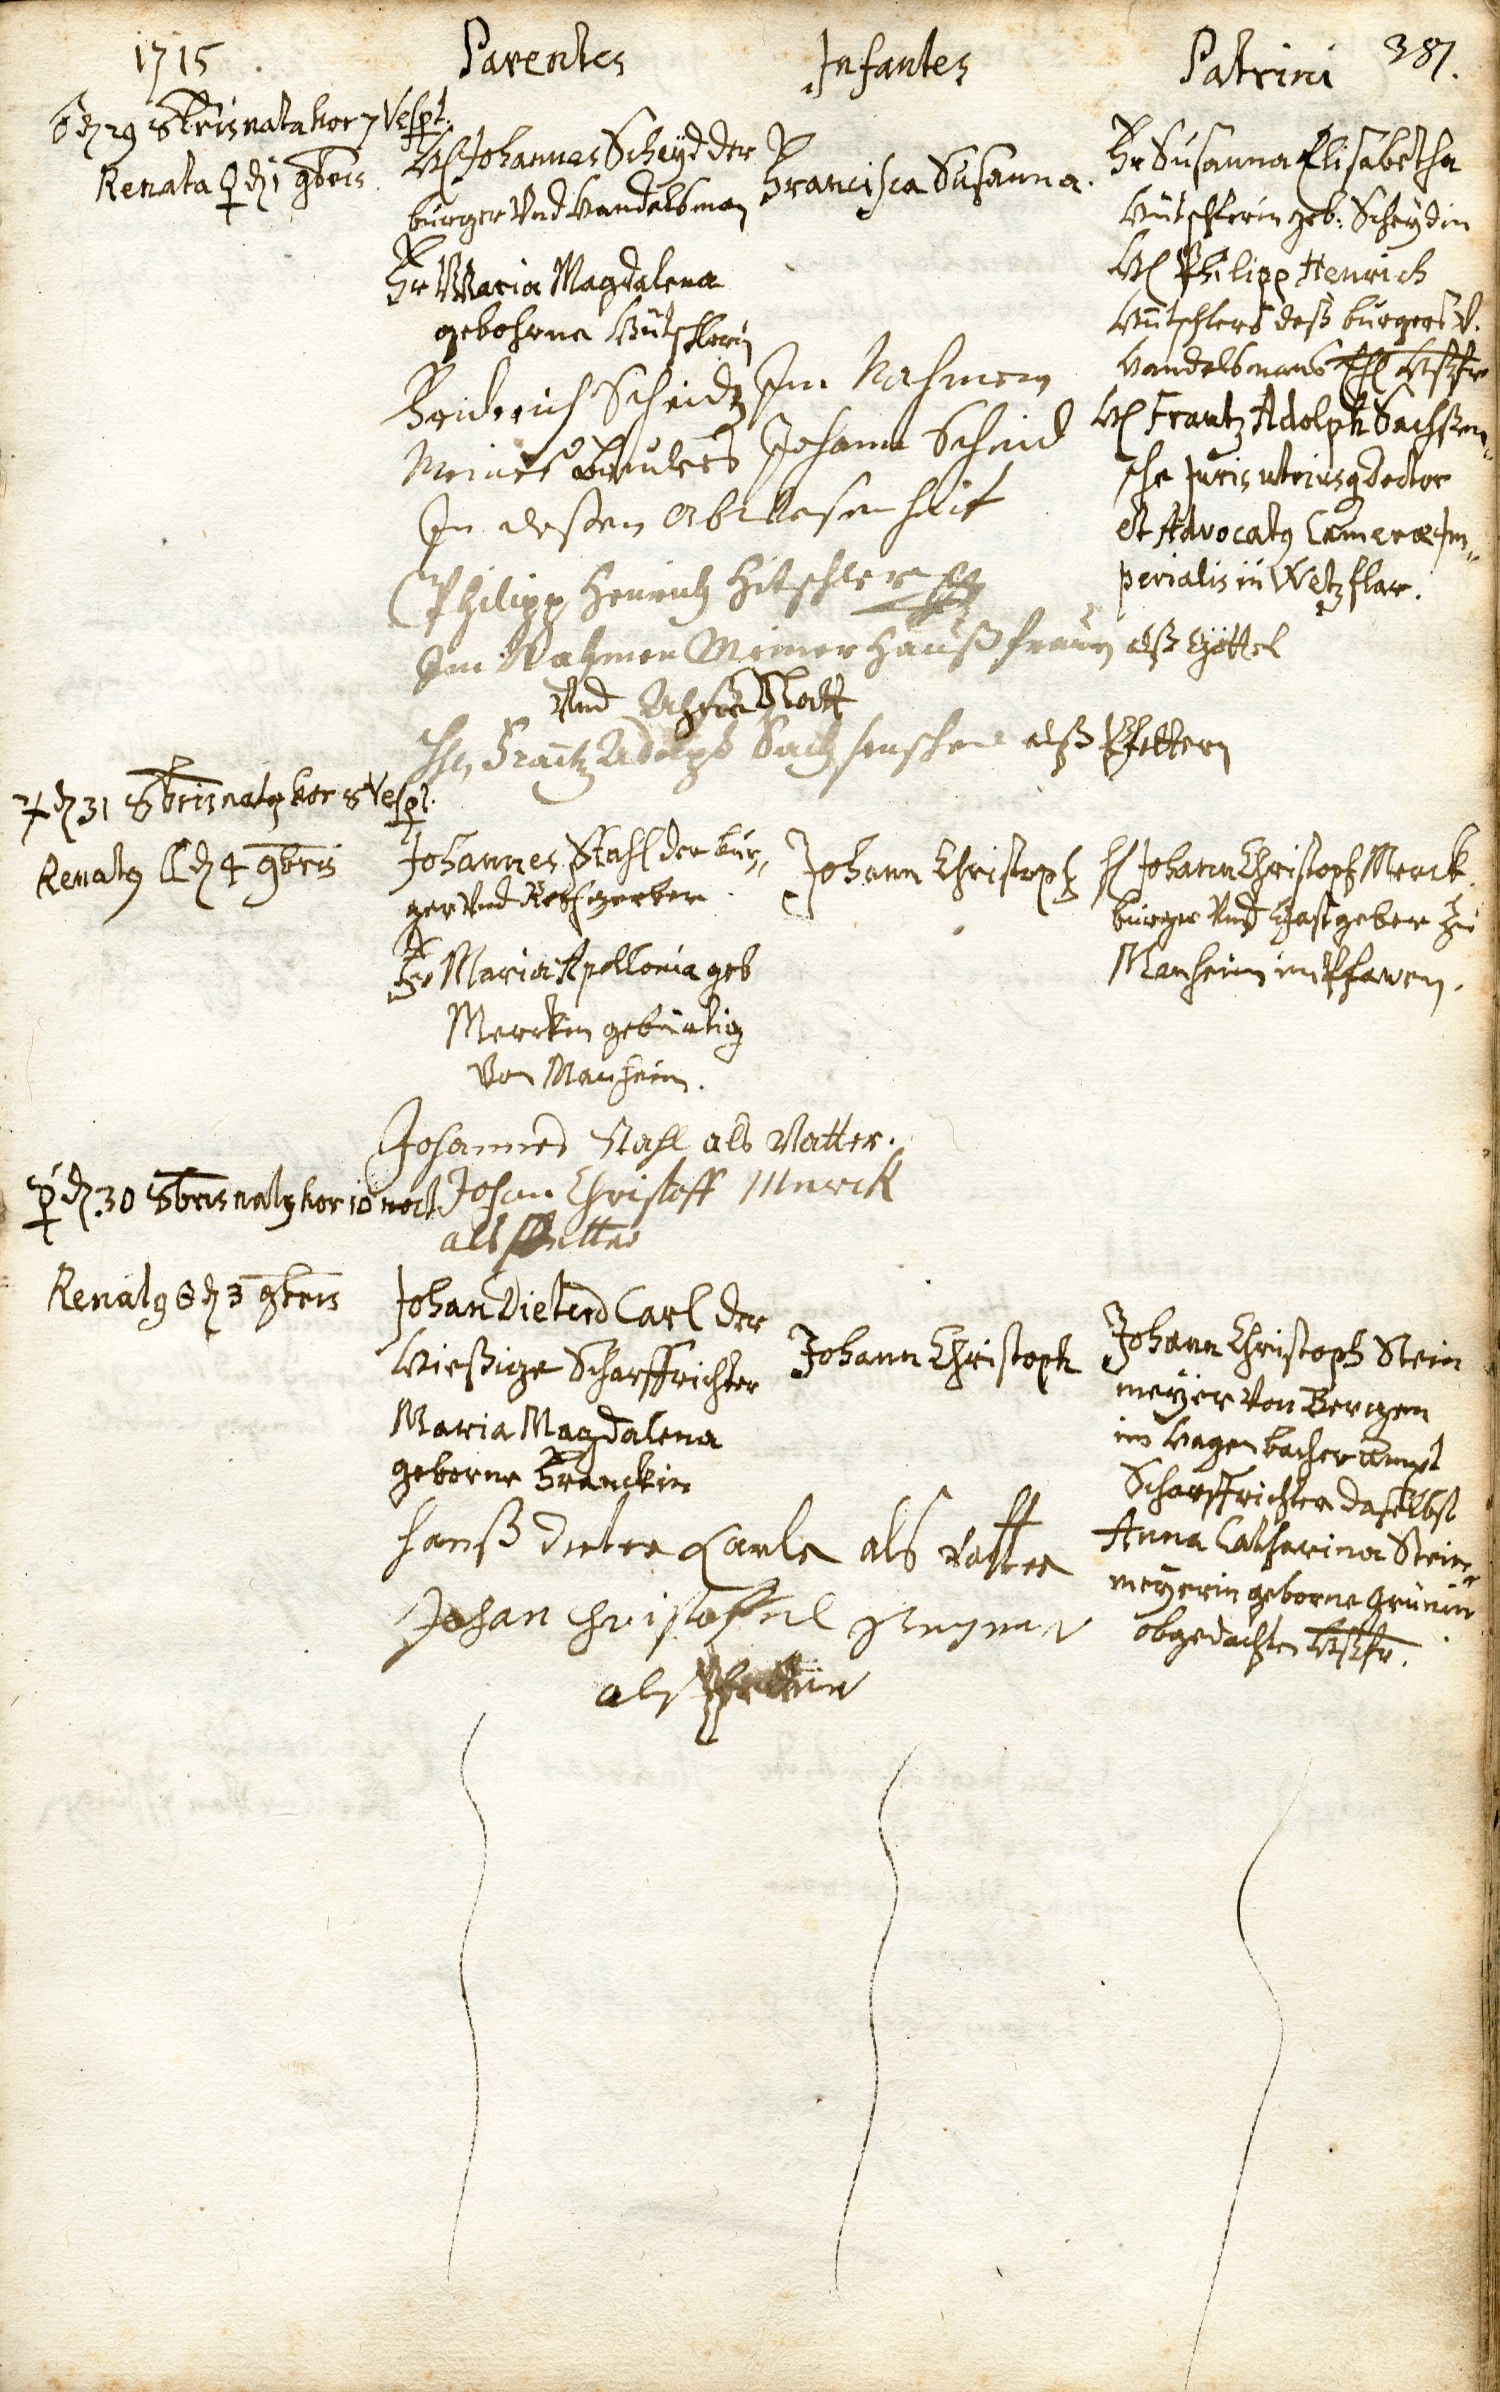 1715
Parentes
Infantes
Patrini
387.
♂ d 29 8bris nata hor 7 Vespt.
Renata ♀ d 1 9bris
H Johannes Scheyd der
burger Vnd Handelsman
Fr Maria Magdalena
gebohrne Hütschlerin
Francisca Susanna.
Fr Susanna Elisabetha
Hütschlerin geb: Scheydin
H Philipp Henrich
Hütschlers deß burgers V.
Handelsmans Ehl Hßfr
H Frantz Adolph Sachßen„
sche Juris utriusq doctor
et Advocatg Cameræ Im„
perialis in Wetzflar.
Friderich Scheidt Im Nahmen
Meines bruders Johann Scheid
In deßen Abwesenheit
Philipp Henrich Hitschler
Im Nahmen Meiner Haußfrauen alß Göttel
Vnd
Frantz Adolph Sachsenschen alß Pfettern
♃ d 31 8bris natg hor 8 Vespt.
Renatg ☾ d 4 9bris
Johannes Stahl der bur„
ger Vnd Rohtgerber
Fr Maria Apollonia geb
Merckin gebürtig
Von Manheim.
Johann Christoph
H Johann Christoph Merck
burger Vnd Gastgeber zu
Manheim im Pfawen.
Johannes Stahl als Vatter.
Johan Christoff Merck
als Pfetter
☿ d 30 8bris natg hor 10 noct
Renatg d 3 9bris
Johan Dieterd Carl der
Hießige Scharffrichter
Maria Magdalena
geborne Franckin
Johann Christoph
Johann Christoph Stein
meyer Von Bergen
im Hagenbacher ampt
Scharffrichter daselbst
Anna Catharina Stein„
meyerin geborne Grünin
obgedachten Hßfr.
Hanß Dieter Carle als Vatter
Johan Christoffel
als Pfetter